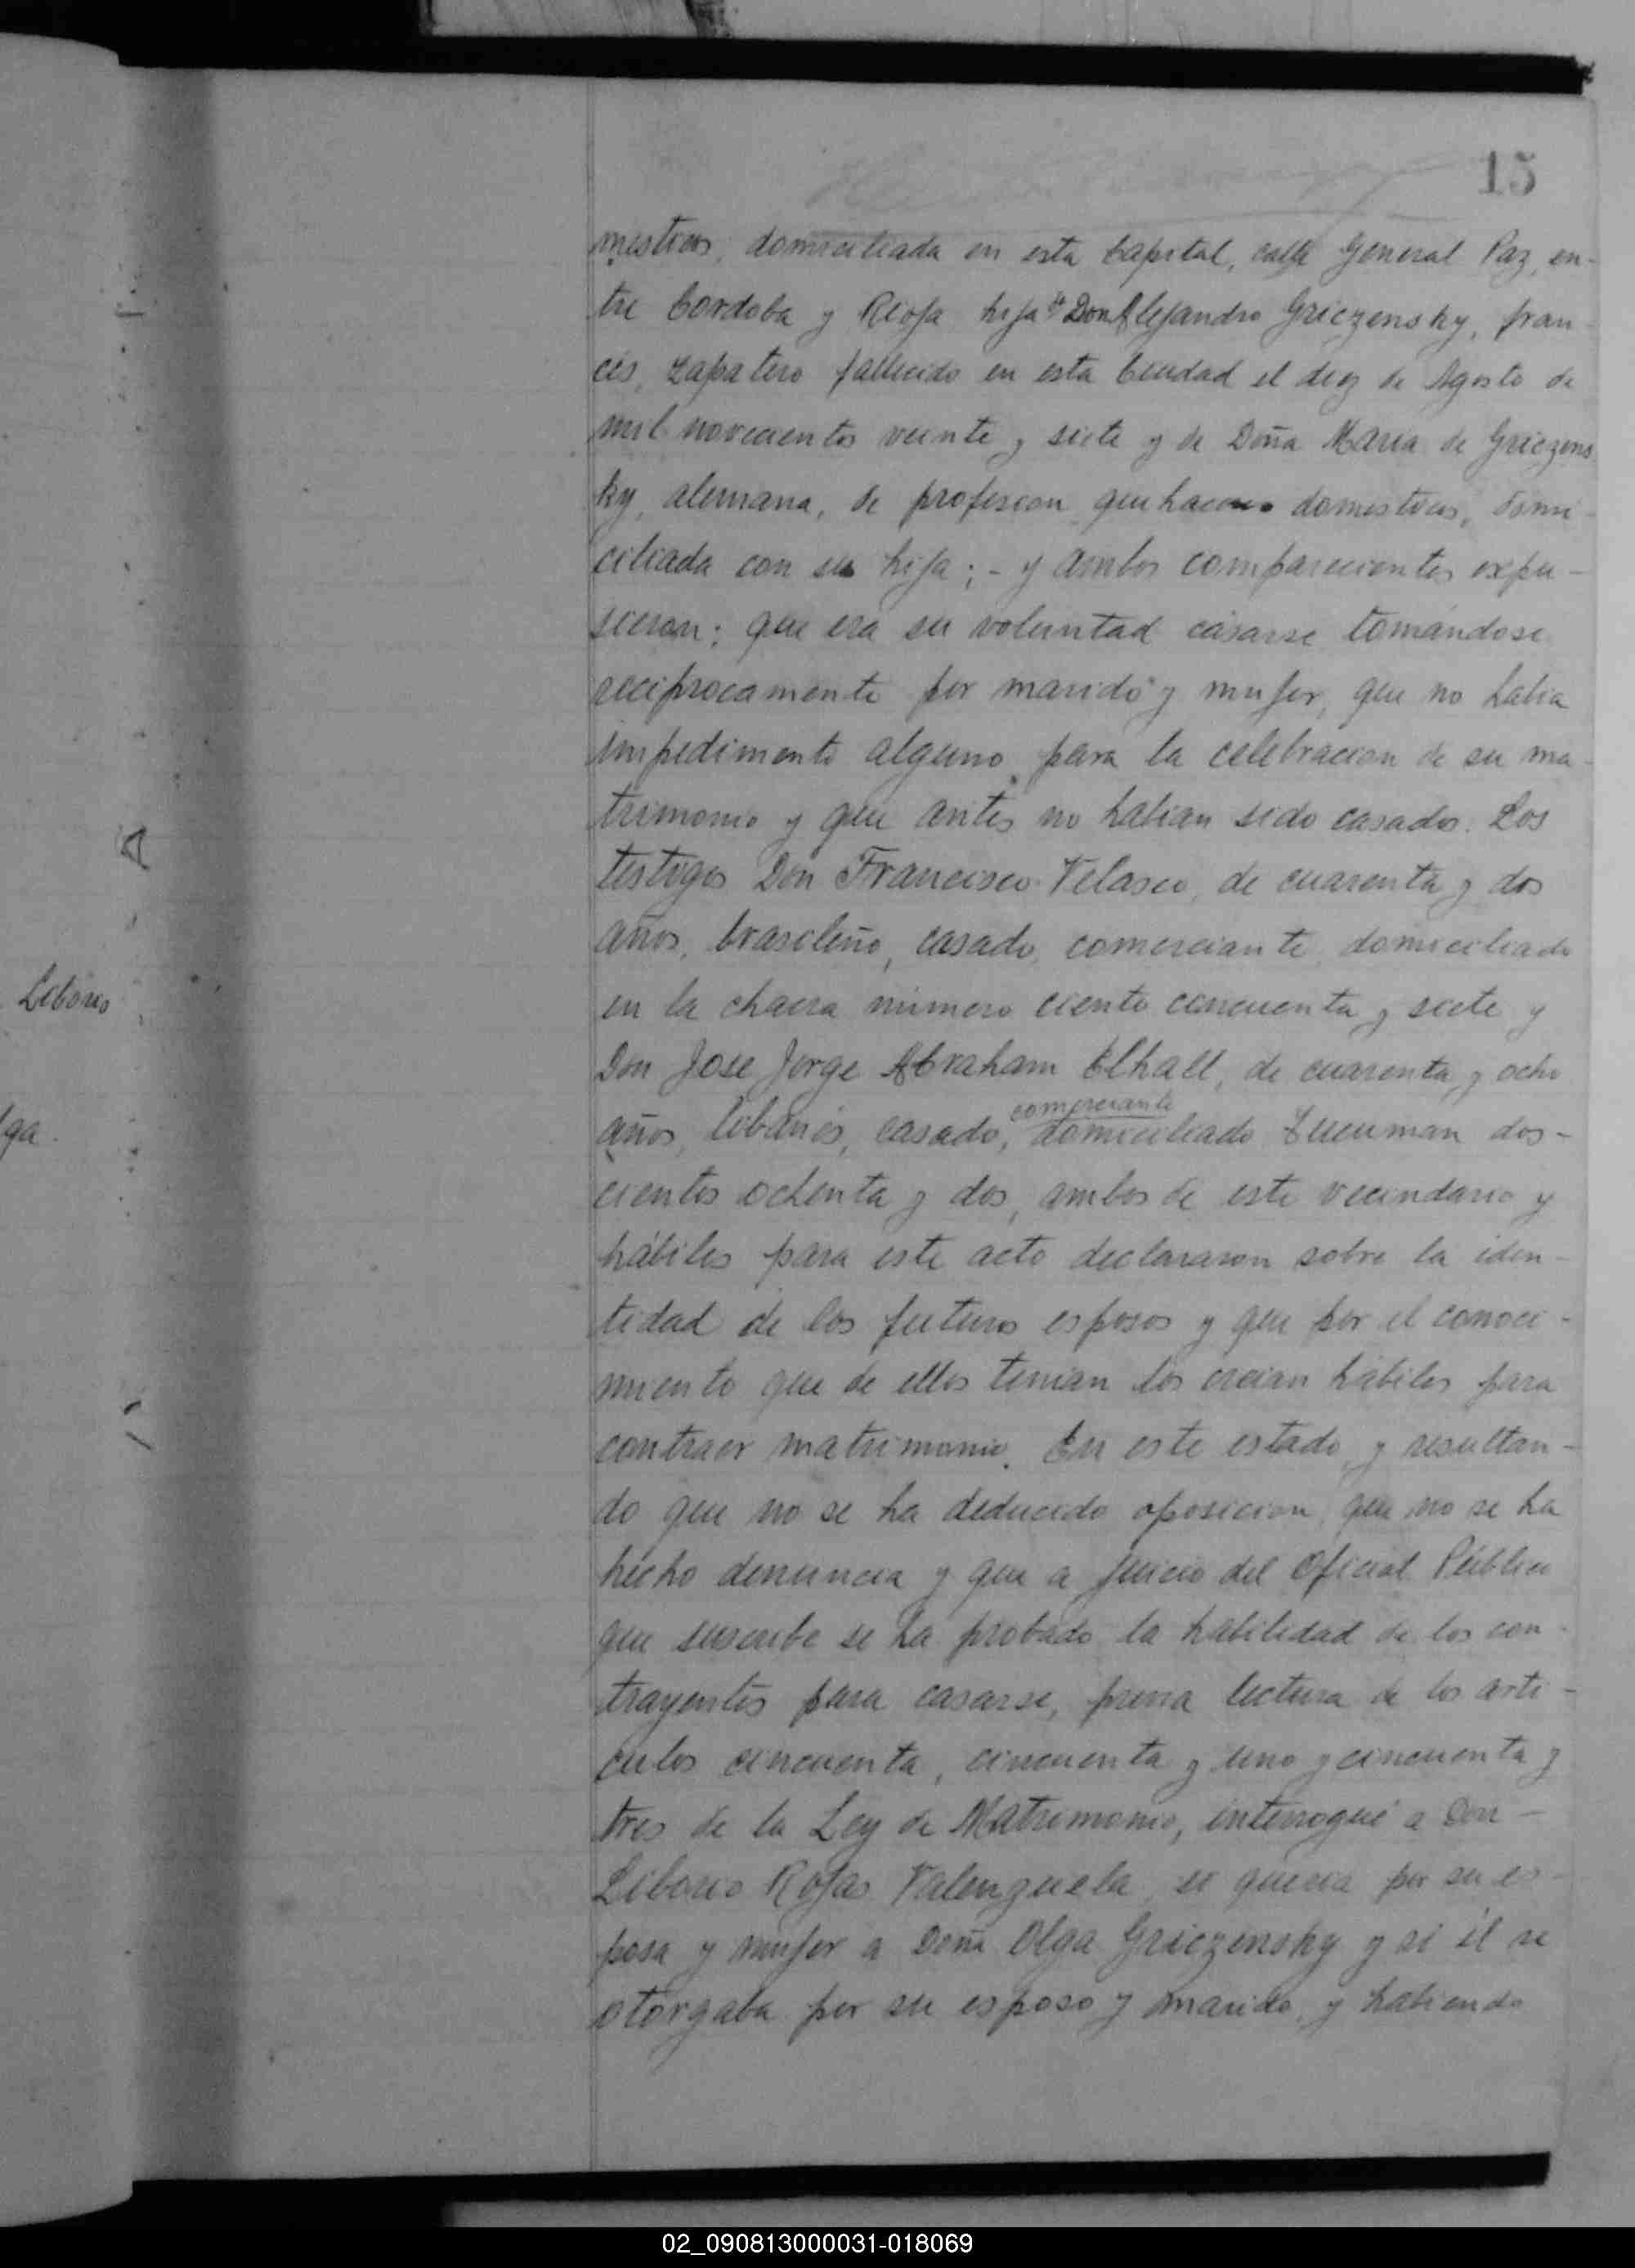 15
mesticos, domiciliada en esta Capital, calle General Paz, en-
tre Cordoba y Rioja hija de Don Alejandro Griezensky, fran-
cés, zapatero fallecido en esta Ciudad el diez de Agosto de
mil novecientos veinte y siete y de Doña Maria de Griezens
ky, alemana, de profesion quehaceres domesticos, domi-
ciliada con su hija; - y ambos comparecientes expu-
sieron: que era su voluntad casarse tomándose
reciprocamente por marido y mujer, que no habia
impedimento alguno para la celebracion de su ma-
trimonio y que antes no habian sido casados. Los
testigos Don Francisco Velasco, de cuarenta y dos
años, brasileño, casado, comerciante, domiciliado
en la chacra número ciento cincuenta y siete y
Liborio
Don Jose Jorge Abraham Elhall, de cuarenta y ocho
comerciante
años, libanés, casado, domiciliado Tucuman dos-
lga.
cientos ochenta y dos, ambos de este vecindario y
hábiles para este acto declararon sobre la iden-
tidad de los futuros esposos y que por el conoci-
miento que de ellos tenian los creian hábiles para
contraer matrimonio. En este estado y resultan-
do que no se ha deducido oposicion, que no se ha
hecho denuncia y que a juicio del Oficial Público
que suscribe se ha probado la habilidad de los con-
trayentes para casarse, previa lectura de los arti-
culos cincuenta, cincuenta y uno y cincuenta y
tres de la Ley de Matrimonio, interrogué a Don -
Liborio Rojas Valenzuela si queria por su es-
posa y mujer a Doña Olga Griezensky y si él se
otorgaba por su esposo y marido, y habiendo
02_090813000031-018069